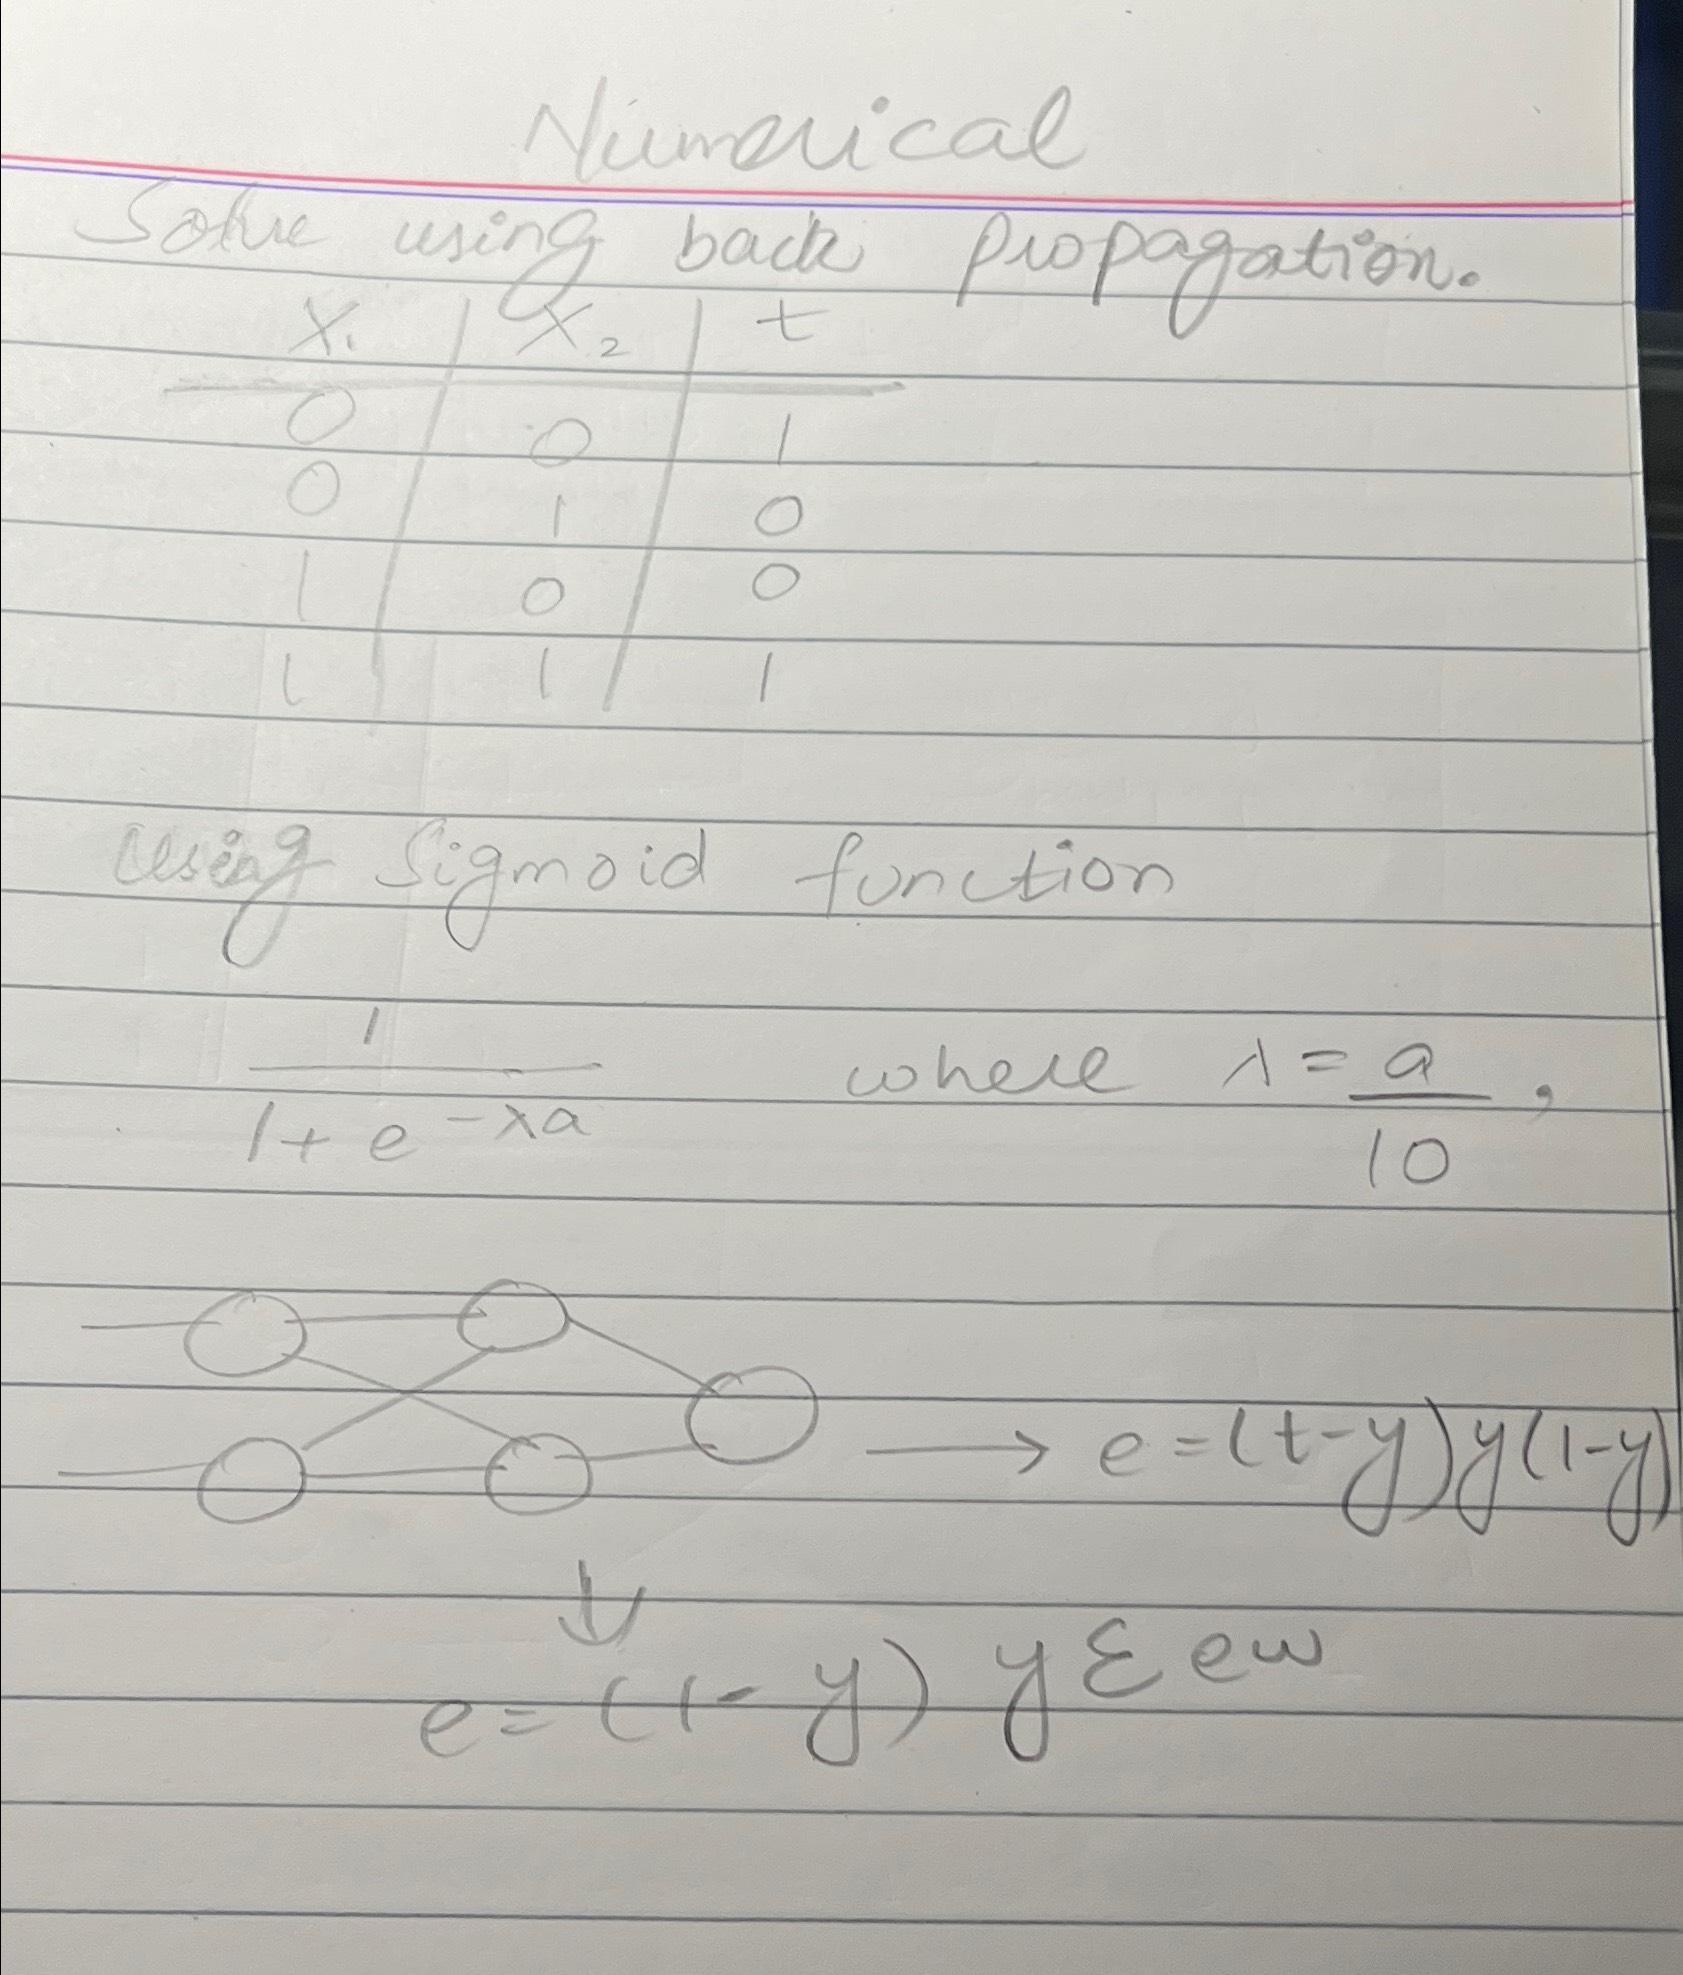 Numerical
Solve using back propagation.
X₁ | X₂ | t
0 | 0 | 1
0 | 1 | 0
1 | 0 | 0
1 | 1 | 1
Using Sigmoid function
1 / (1 + e^(-λa)) where λ = a/10,
→ e = (t-y)y(1-y)
↓
e = (1-y) y Σ ew